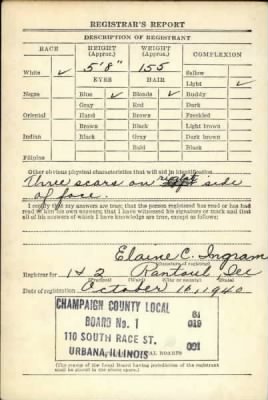 REGISTRAR'S REPORT
DESCRIPTION OF REGISTRANT
RACE HEIGHT (Approx.) WEIGHT (Approx.) COMPLEXION
White ✓ 5'8" 155 Sallow
EYES HAIR Light ✓
Negro Blue ✓ Blonde ✓ Ruddy
Gray Red Dark
Oriental Hazel Brown Freckled
Brown Black Light brown
Indian Black Gray Dark brown
Bald Black
Filipino
Other obvious physical characteristics that will aid in identification
Three scars on right side
of face.
I certify that my answers are true; that the person registered has read or has had
read to him his own answers; that I have witnessed his signature or mark and that
all of his answers of which I have knowledge are true, except as follows:
Elaine C. Ingram
(Signature of registrar)
Registrar for 1 & 2 Rantoul, Ill
Date of registration October 16, 1940
CHAMPAIGN COUNTY LOCAL 61
BOARD No. 1 019
110 SOUTH RACE ST. 001
URBANA, ILLINOIS
(The stamp of the Local Board having jurisdiction of the registrant
shall be placed in the above space.)